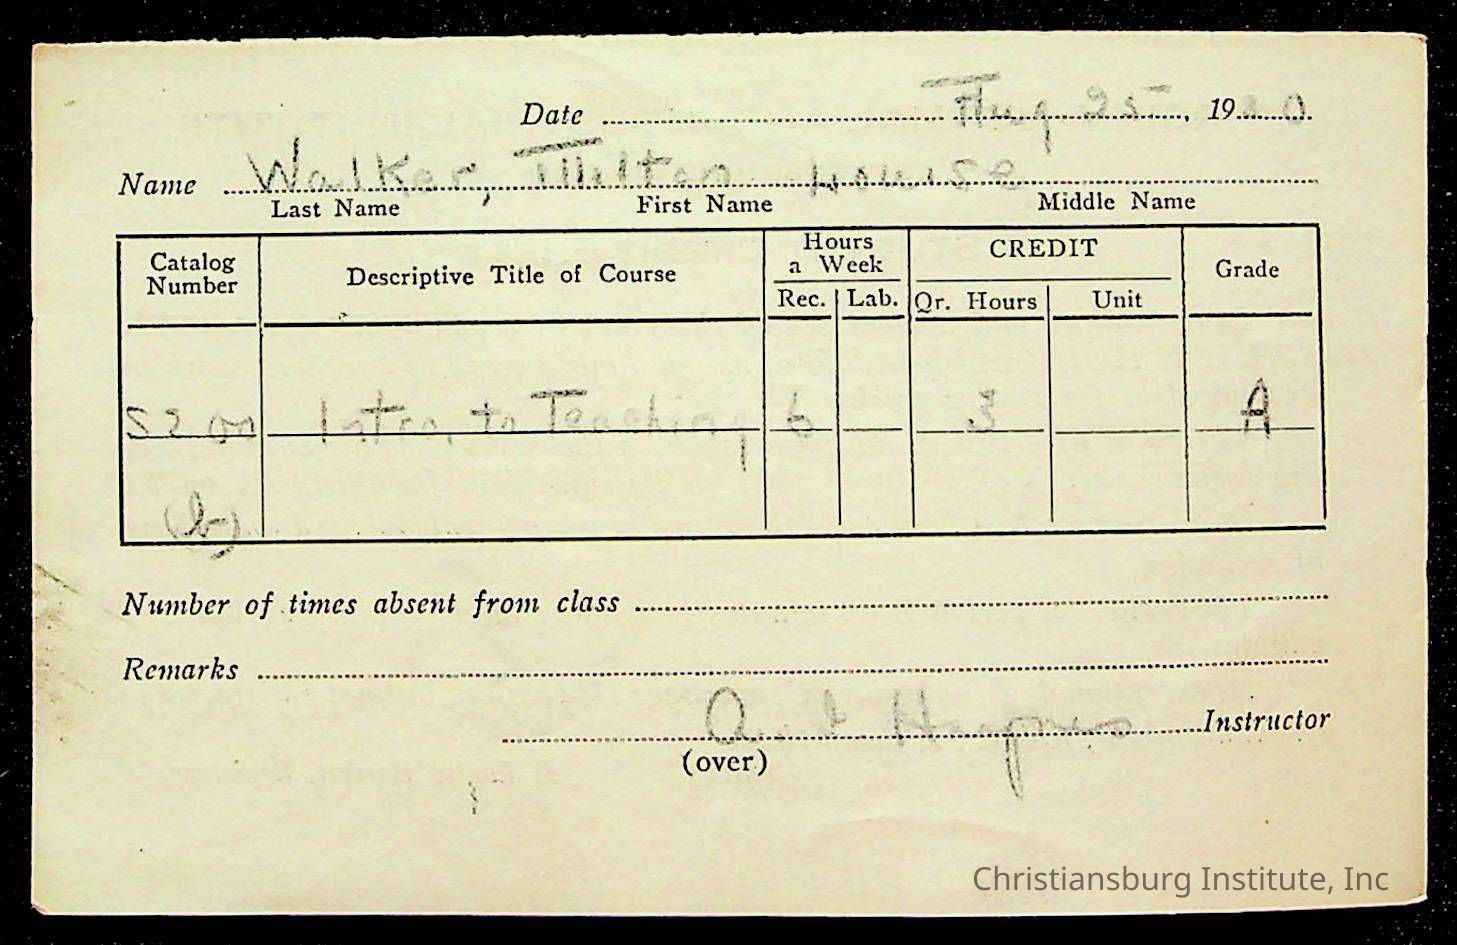 Date Aug 25, 19
Name Walker, Milton Louise
Last Name First Name Middle Name
Catalog Number Descriptive Title of Course Hours a Week CREDIT Grade
Rec. Lab. Qr. Hours Unit
S200 Intro. to Teaching 6 3 A
(b)
Number of times absent from class
Remarks
Instructor
(over)
Christiansburg Institute, Inc